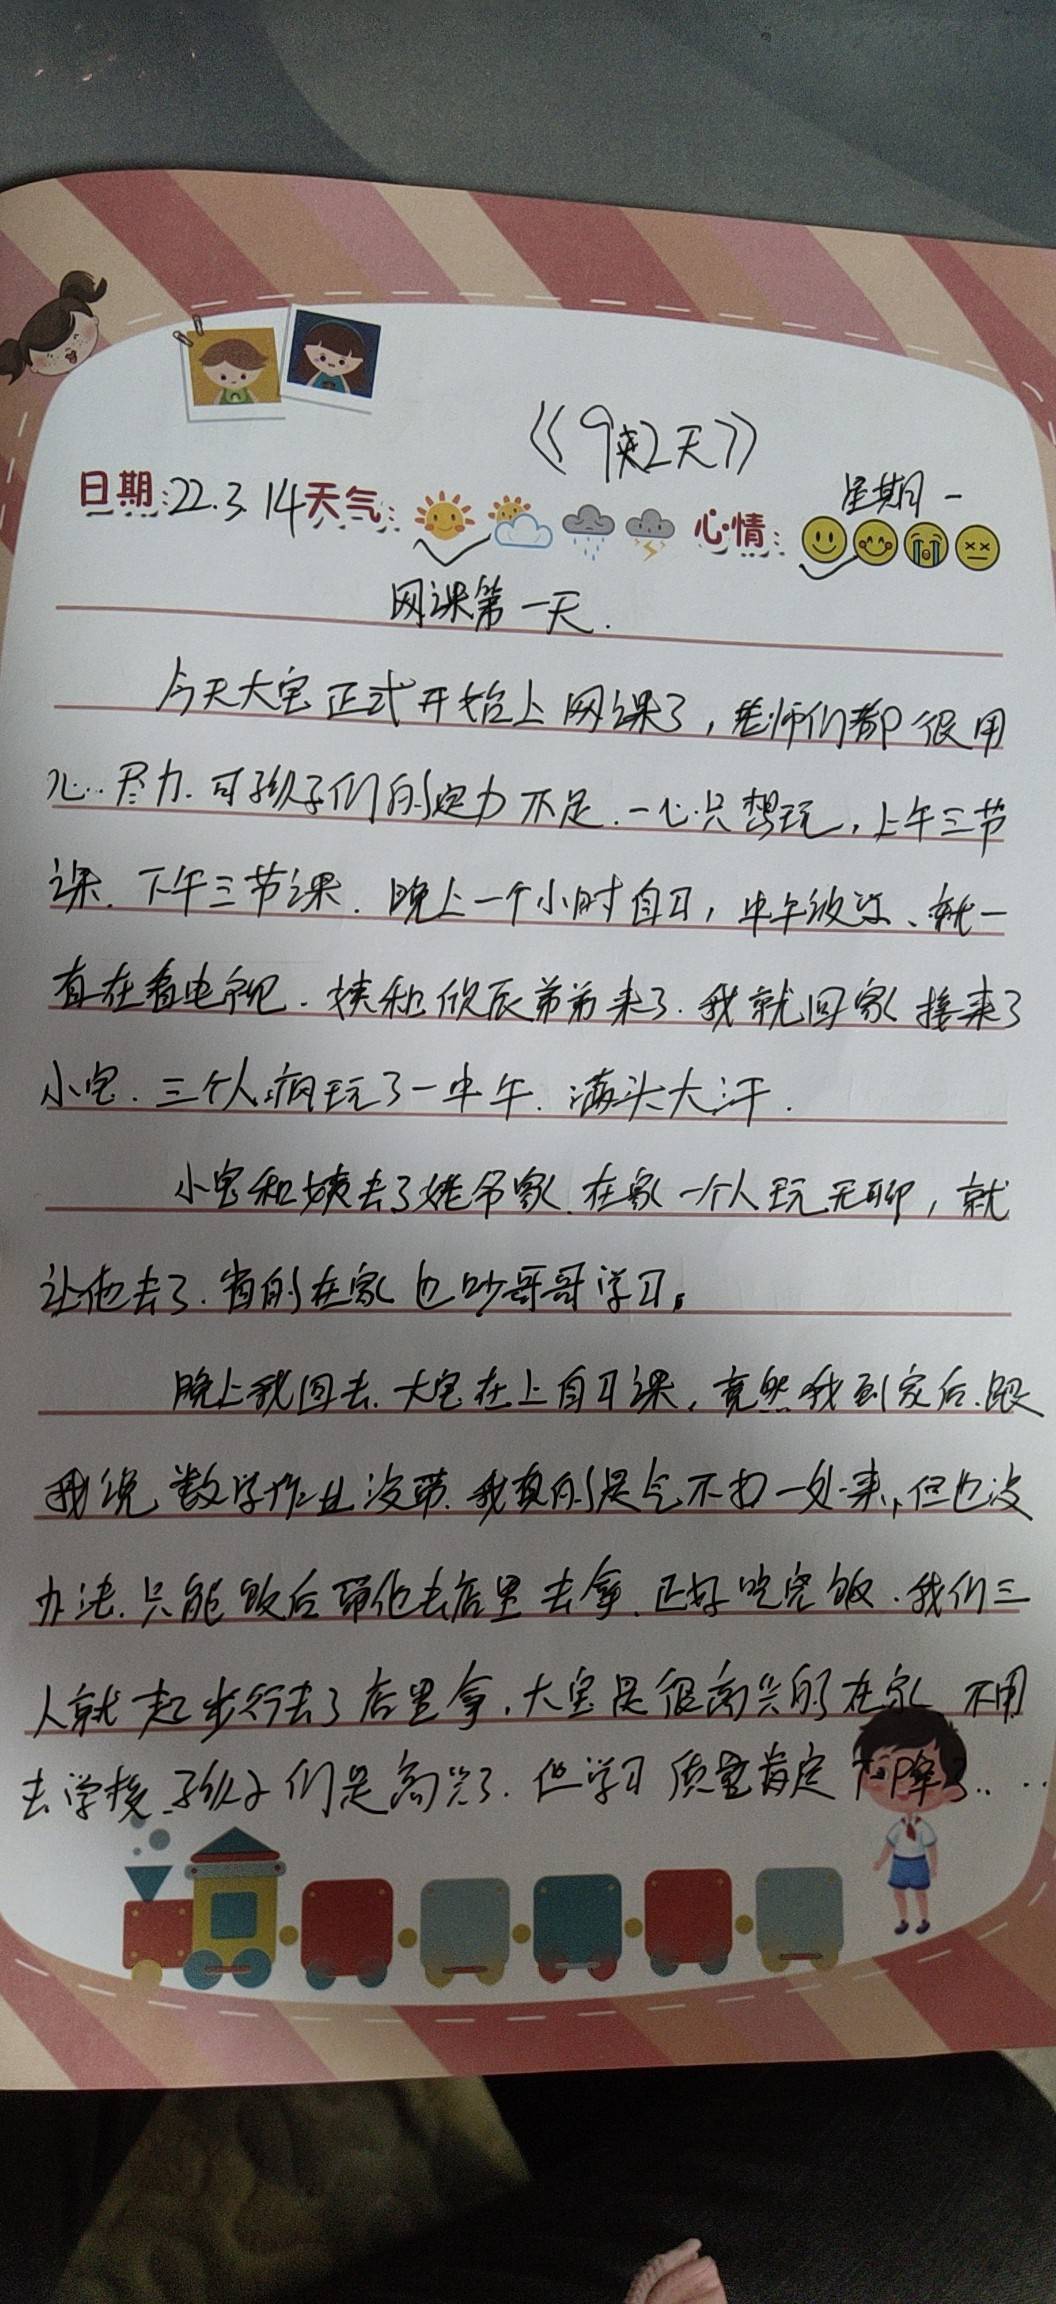 《9岁2天》
日期:22.3.14 天气: 心情: 星期一
网课第一天.
今天大宝正式开始上网课了,老师们都很用
心.尽力.可孩子们的定力不足.一心只想玩,上午三节
课.下午三节课.晚上一个小时自习,中午没睡、就一
直在看电视.姨和欣辰弟弟来了.我就回家接来了
小宝.三个人疯玩了一中午.满头大汗.
小宝和姨去了姥爷家.在家一个人玩无聊,就
让他去了.省的在家也吵哥哥学习。
晚上我回去.大宝在上自习课,竟然我到家后.跟
我说数学作业没带.我真的是气不打一处来,但也没
办法.只能饭后带他去店里去拿.正好吃完饭.我们三
人就一起步行去了店里拿.大宝是很高兴的在家 不用
去学校.孩子们是高兴了.但学习质量肯定下降了.....